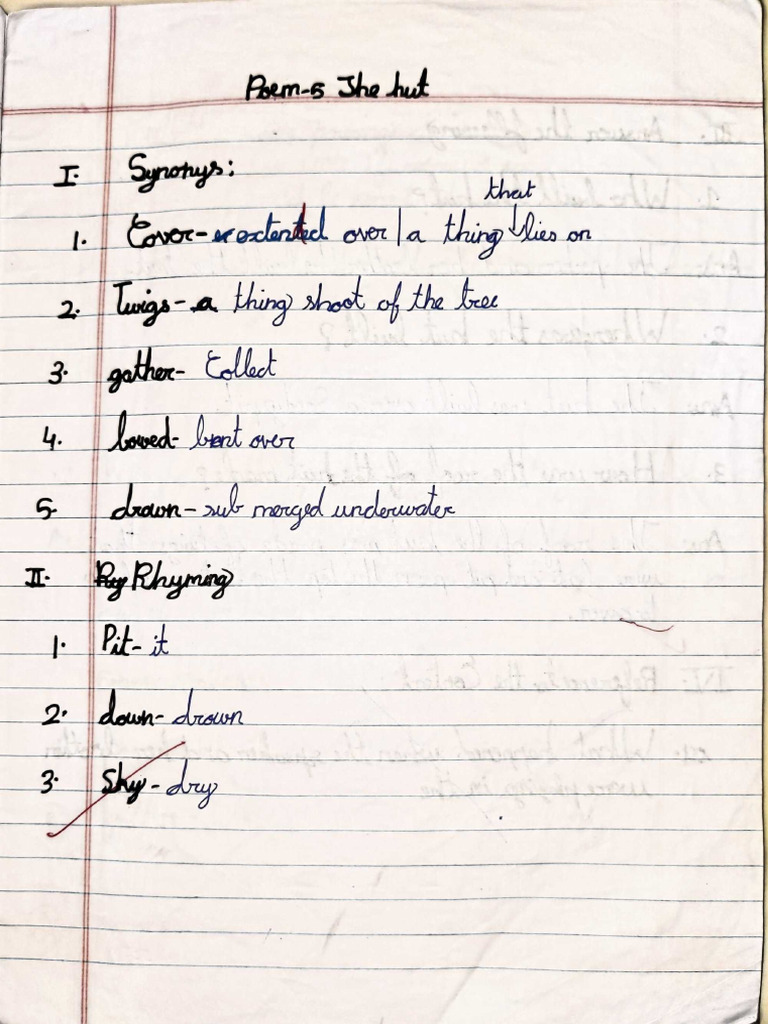 Poem-5 The hut
I. Synonys:
that
1. Cover- extented over / a thing lies on
2. Twigs- a thing shoot of the tree
3. gather- Collect
4. bowed- bent over
5. drown- sub merged underwater
II. Rhyming
1. Pit- it
2. down- drown
3. Sky- dry